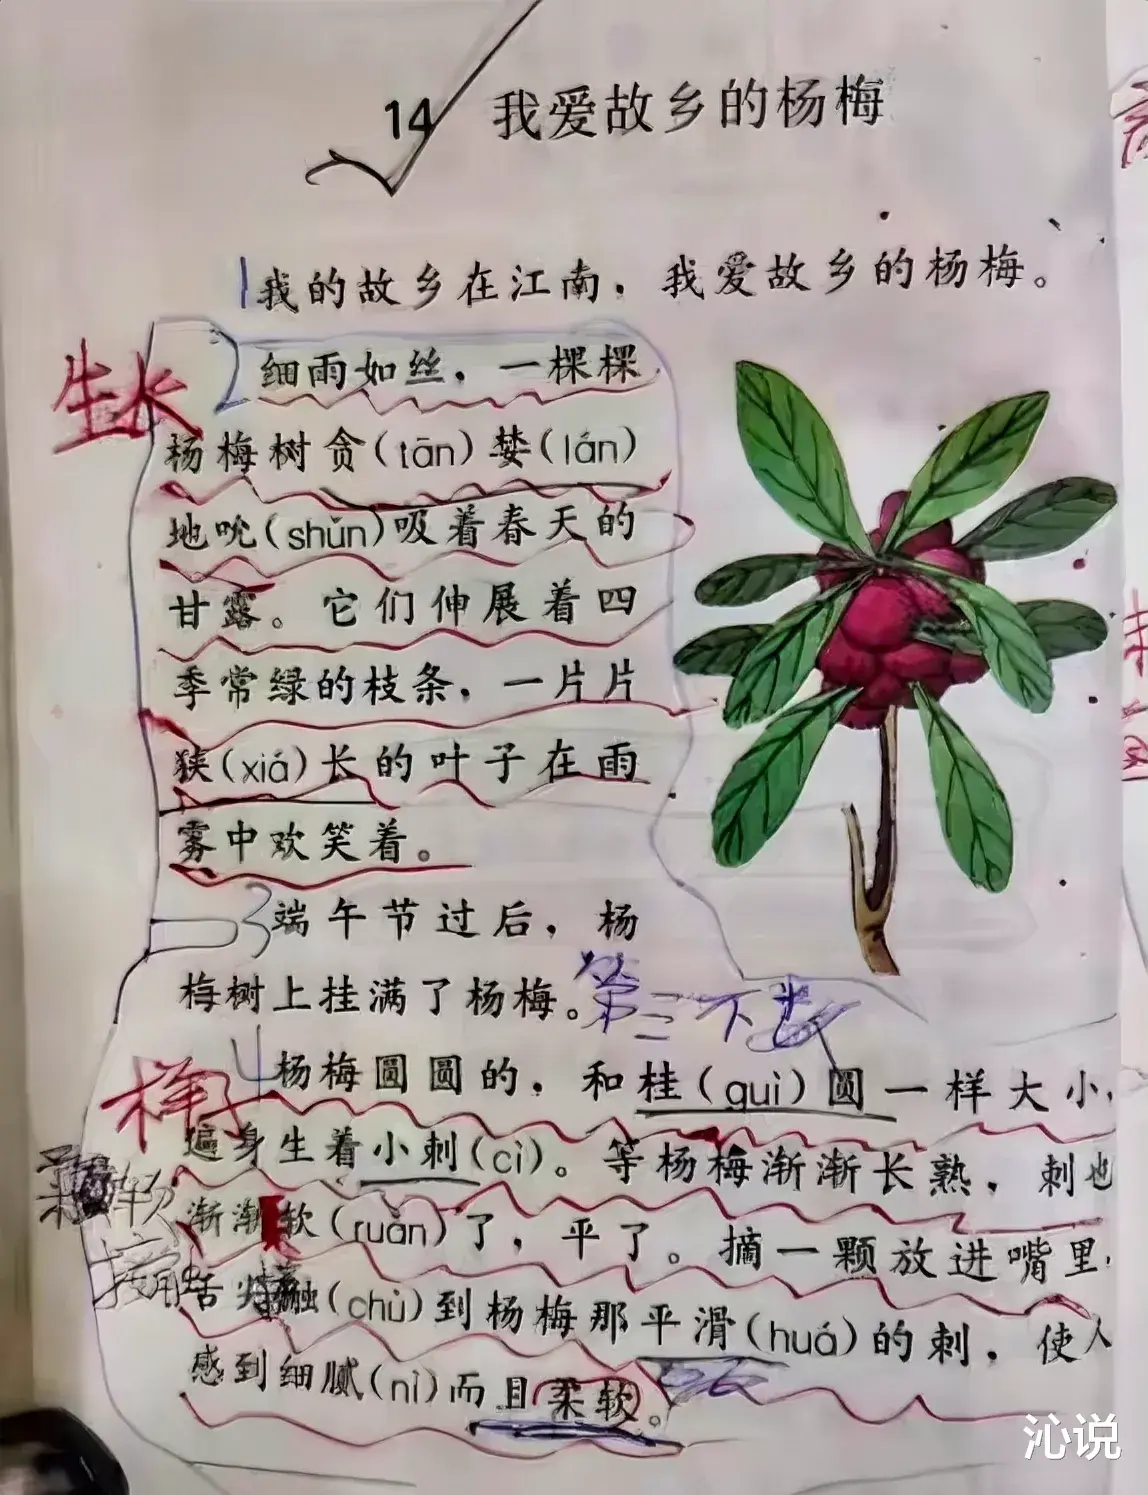 14 我爱故乡的杨梅
1我的故乡在江南，我爱故乡的杨梅。
生长
2细雨如丝，一棵棵
杨梅树贪(tān)婪(lán)
地吮(shǔn)吸着春天的
甘露。它们伸展着四
季常绿的枝条，一片片
狭(xiá)长的叶子在雨
雾中欢笑着。
3端午节过后，杨
梅树上挂满了杨梅。
第三下
样子
4杨梅圆圆的，和桂(guì)圆一样大小，
遍身生着小刺(cì)。等杨梅渐渐长熟，刺也
柔软
渐渐软(ruǎn)了，平了。摘一颗放进嘴里，
接
舌尖触(chù)到杨梅那平滑(huá)的刺，使人
感到细腻(nì)而且柔软。
沁说